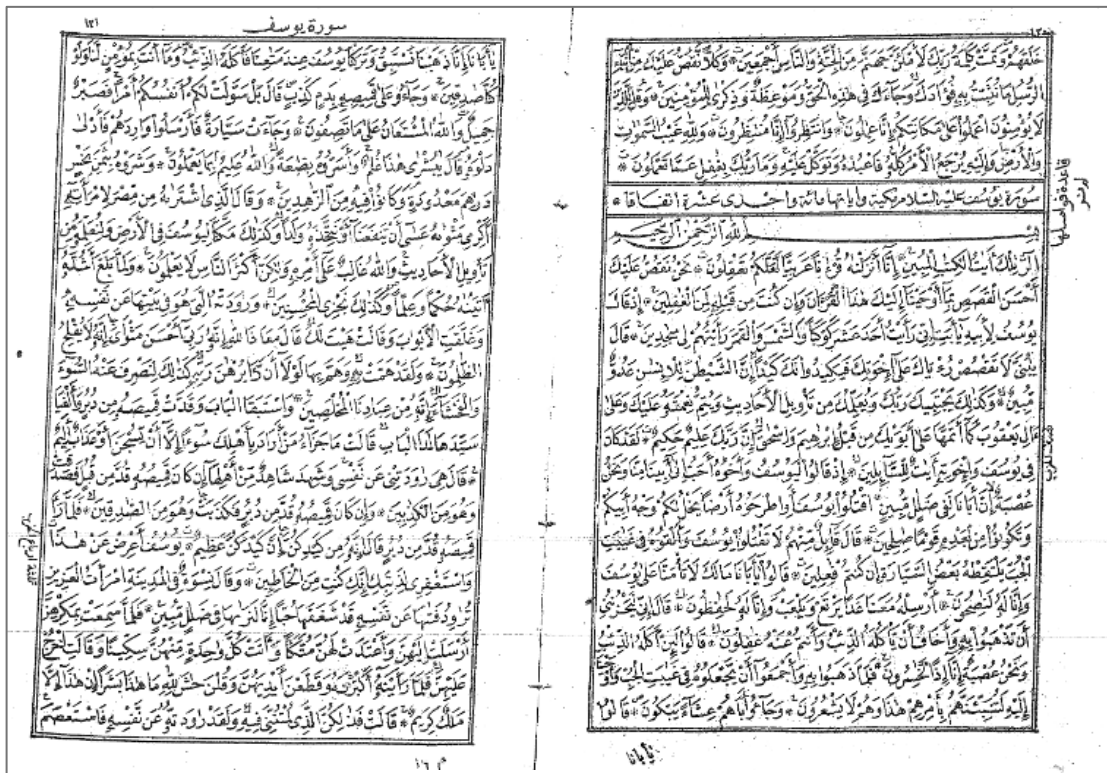 خلقهم وتمت كلمة ربك لأملئن جهنم من الجنة والناس أجمعين وكلا نقص عليك من أنباء
الرسل ما نثبت به فؤادك وجاءك في هذه الحق وموعظة وذكرى للمؤمنين وقل للذين
لا يؤمنون اعملوا على مكانتكم إنا عملون وانتظروا إنا منتظرون ولله غيب السموت
والأرض وإليه يرجع الأمر كله فاعبده وتوكل عليه وما ربك بغفل عما تعملون
سورة يوسف عليه السلام مكية واياتها مائة واحدى عشرة اتفاقا
بسم الله الرحمن الرحيم
الر تلك أيت الكتب المبين إنا أنزلنه قرءنا عربيا لعلكم تعقلون نحن نقص عليك
أحسن القصص بما أوحينا إليك هذا القرءان وإن كنت من قبله لمن الغفلين إذ قال
يوسف لأبيه يأبت إني رأيت أحد عشر كوكبا والشمس والقمر رأيتهم لي سجدين قال
يبني لا تقصص رءياك على إخوتك فيكيدوا لك كيدا إن الشيطن للإنسن عدو
مبين وكذلك يجتبيك ربك ويعلمك من تأويل الأحاديث ويتم نعمته عليك وعلى
ال يعقوب كما أتمها على أبويك من قبل إبرهيم وإسحق إن ربك عليم حكيم لقد كان
في يوسف وإخوته أيت للسائلين إذ قالوا ليوسف وأخوه أحب إلى أبينا منا ونحن
عصبة إن أبانا لفي ضلل مبين اقتلوا يوسف أو اطرحوه أرضا يخل لكم وجه أبيكم
وتكونوا من بعده قوما صلحين قال قائل منهم لا تقتلوا يوسف وألقوه في غيبت
الجب يلتقطه بعض السيارة إن كنتم فعلين قالوا يأبانا مالك لا تأمنا على يوسف
وإنا له لنصحون أرسله معنا غدا يرتع ويلعب وإنا له لحفظون قال إني ليحزنني
أن تذهبوا به وأخاف أن يأكله الذئب وأنتم عنه غفلون قالوا لئن أكله الذئب
ونحن عصبة إنا إذا لخسرون فلما ذهبوا به وأجمعوا أن يجعلوه في غيبت الجب وأوحينا
إليه لتنبئنهم بأمرهم هذا وهم لا يشعرون وجاءو أباهم عشاء يبكون قالوا
يأبانا
سورة يوسف
١٢١
يأبانا إنا ذهبنا نستبق وتركنا يوسف عند متعنا فأكله الذئب وما أنت بمؤمن لنا ولو
كنا صدقين وجاءو على قميصه بدم كذب قال بل سولت لكم أنفسكم أمرا فصبر
جميل والله المستعان على ما تصفون وجاءت سيارة فأرسلوا واردهم فأدلى
دلوه قال يبشرى هذا غلم وأسروه بضعة والله عليم بما يعملون وشروه بثمن بخس
درهم معدودة وكانوا فيه من الزهدين وقال الذي اشتره من مصر لامرأته
أكرمي مثوه عسى أن ينفعنا أو نتخذه ولدا وكذلك مكنا ليوسف في الأرض ولنعلمه من
تأويل الأحاديث والله غالب على أمره ولكن أكثر الناس لا يعلمون ولما بلغ أشده
أتينه حكما وعلما وكذلك نجزي المحسنين ورودته التي هو في بيتها عن نفسه
وغلقت الأبواب وقالت هيت لك قال معاذ الله إنه ربي أحسن مثواي إنه لا يفلح
الظلمون ولقد همت به وهم بها لولا أن رءا برهن ربه كذلك لنصرف عنه السوء
والفحشاء إنه من عبادنا المخلصين واستبقا الباب وقدت قميصه من دبر وألفيا
سيدها لدا الباب قالت ما جزاء من أراد بأهلك سوءا إلا أن يسجن أو عذاب أليم
قال هي رودتني عن نفسي وشهد شاهد من أهلها إن كان قميصه قد من قبل فصدقت
وهو من الكذبين وإن كان قميصه قد من دبر فكذبت وهو من الصدقين فلما رءا
قميصه قد من دبر قال إنه من كيدكن إن كيدكن عظيم يوسف أعرض عن هذا
واستغفري لذنبك إنك كنت من الخاطئين وقال نسوة في المدينة امرأت العزيز
ترود فتها عن نفسه قد شغفها حبا إنا لنراها في ضلل مبين فلما سمعت بمكرهن
أرسلت إليهن وأعتدت لهن متكأ وأتت كل وحدة منهن سكينا وقالت اخرج
عليهن فلما رأينه أكبرنه وقطعن أيديهن وقلن حش لله ما هذا بشرا إن هذا إلا
ملك كريم قالت فذلكن الذي لمتنني فيه ولقد رودته عن نفسه فاستعصم